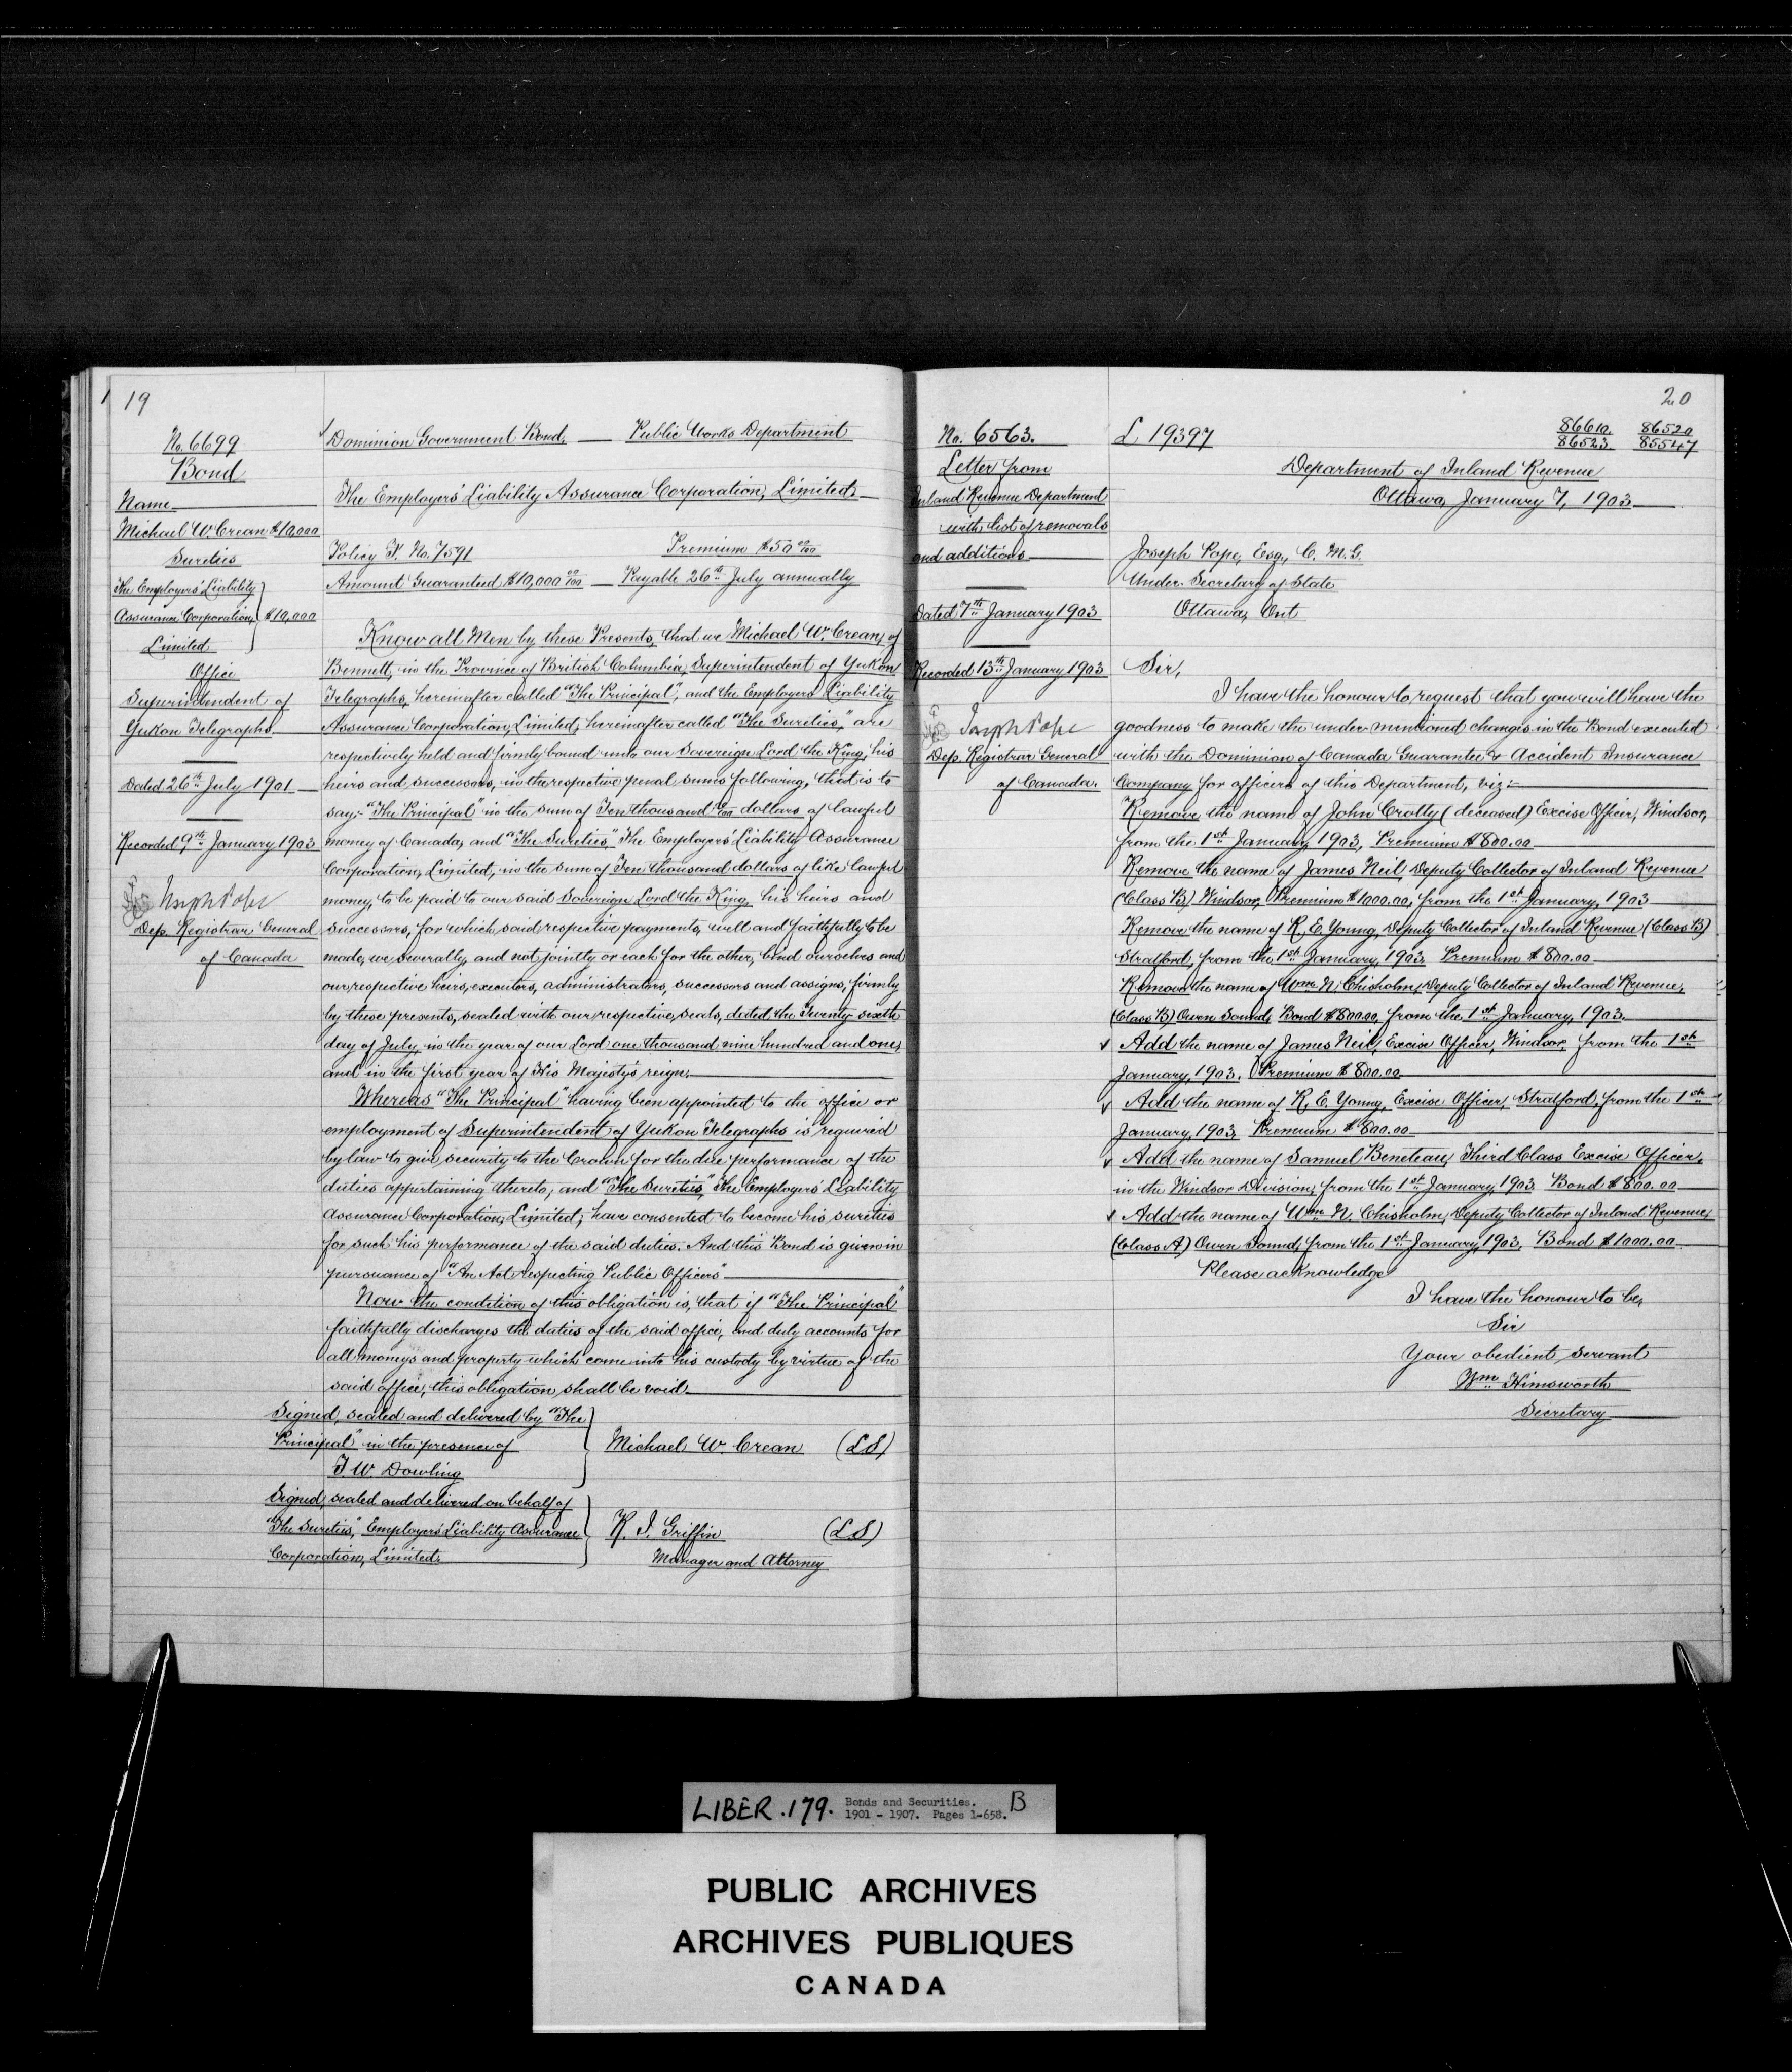 19
No. 6699
Bond
Name
Michael W. Crean $10,000
Sureties
The Employers' Liability
Assurance Corporation, $10,000
Limited
Office
Superintendent of
Yukon Telegraphs
Dated 26th July 1901
Recorded 9th January 1903
Joseph Pope
Dep. Registrar General
of Canada
Dominion Government Bond, — Public Works Department
The Employers' Liability Assurance Corporation, Limited
Policy F. No. 7591 Premium $50 00/100
Amount Guaranteed $10,000 00/100 — Payable 26th July annually
Know all Men by these Presents, that we Michael W. Crean, of
Bennett, in the Province of British Columbia, Superintendent of Yukon
Telegraphs, hereinafter called "The Principal", and the Employers' Liability
Assurance Corporation, Limited, hereinafter called "The Sureties," are
respectively held and firmly bound unto our Sovereign Lord the King, his
heirs and successors, in the respective penal sums following, that is to
say:- "The Principal" in the sum of Ten thousand 00/100 dollars of lawful
money of Canada, and "The Sureties," The Employers' Liability Assurance
Corporation, Limited, in the sum of Ten thousand dollars of like lawful
money, to be paid to our said Sovereign Lord the King, his heirs and
successors, for which said respective payments, well and faithfully to be
made, we severally, and not jointly or each for the other, bind ourselves and
our respective heirs, executors, administrators, successors and assigns, firmly
by these presents, sealed with our respective, seals, dated the Twenty-sixth
day of July, in the year of our Lord one thousand nine hundred and one,
and in the first year of His Majesty's reign.
Whereas "The Principal" having been appointed to the office or
employment of Superintendent of Yukon Telegraphs is required
by law to give security to the Crown for the due performance of the
duties appertaining thereto, and "The Sureties," The Employers' Liability
Assurance Corporation, Limited, have consented to become his sureties
for such his performance of the said duties. And this Bond is given in
pursuance of "An Act respecting Public Officers"
Now the condition of this obligation is, that if "The Principal"
faithfully discharges the duties of the said office, and duly accounts for
all moneys and property which come into his custody by virtue of the
said office, this obligation shall be void.
Signed, sealed and delivered by "The
Principal" in the presence of
T. W. Dowling
Michael W. Crean (LS)
Signed, sealed and delivered on behalf of
"The Sureties," Employers' Liability Assurance
Corporation, Limited.
K. I. Griffin (LS)
Manager and Attorney
20
No. 6563.
Letter from
Inland Revenue Department
with list of removals
and additions
Dated 7th January 1903
Recorded 13th January 1903
Joseph Pope
Dep. Registrar General
of Canada.
L 19397
86610 86520
86523 85547
Department of Inland Revenue
Ottawa, January 7, 1903
Joseph Pope, Esq., C. M. G.
Under-Secretary of State
Ottawa, Ont
Sir,
I have the honour to request that you will have the
goodness to make the under-mentioned changes in the Bond executed
with the Dominion of Canada Guarantee & Accident Insurance
Company for officers of this Department, viz:-
Remove the name of John Crotty (deceased) Excise Officer, Windsor,
from the 1st January, 1903, Premium $800.00
Remove the name of James Neil, Deputy Collector of Inland Revenue
(Class B) Windsor, Premium $1000.00, from the 1st January, 1903
Remove the name of R. E. Young, Deputy Collector of Inland Revenue (Class B)
Stratford, from the 1st January, 1903. Premium $800.00
Remove the name of Wm N. Chisholm, Deputy Collector of Inland Revenue,
(Class B) Owen Sound, Bond $800.00, from the 1st January, 1903.
Add the name of James Neil, Excise Officer, Windsor, from the 1st
January, 1903. Premium $800.00
Add the name of R. E. Young, Excise Officer, Stratford, from the 1st
January, 1903, Premium $800.00
Add the name of Samuel Beneteau, Third Class Excise Officer,
in the Windsor Division, from the 1st January, 1903. Bond $800.00
Add the name of Wm N. Chisholm, Deputy Collector of Inland Revenue,
(Class A) Owen Sound, from the 1st January, 1903. Bond $1000.00
Please acknowledge
I have the honour to be,
Sir
Your obedient servant
Wm Himsworth
Secretary
LIBER .179. Bonds and Securities. B
1901 - 1907. Pages 1-658.
PUBLIC ARCHIVES
ARCHIVES PUBLIQUES
CANADA